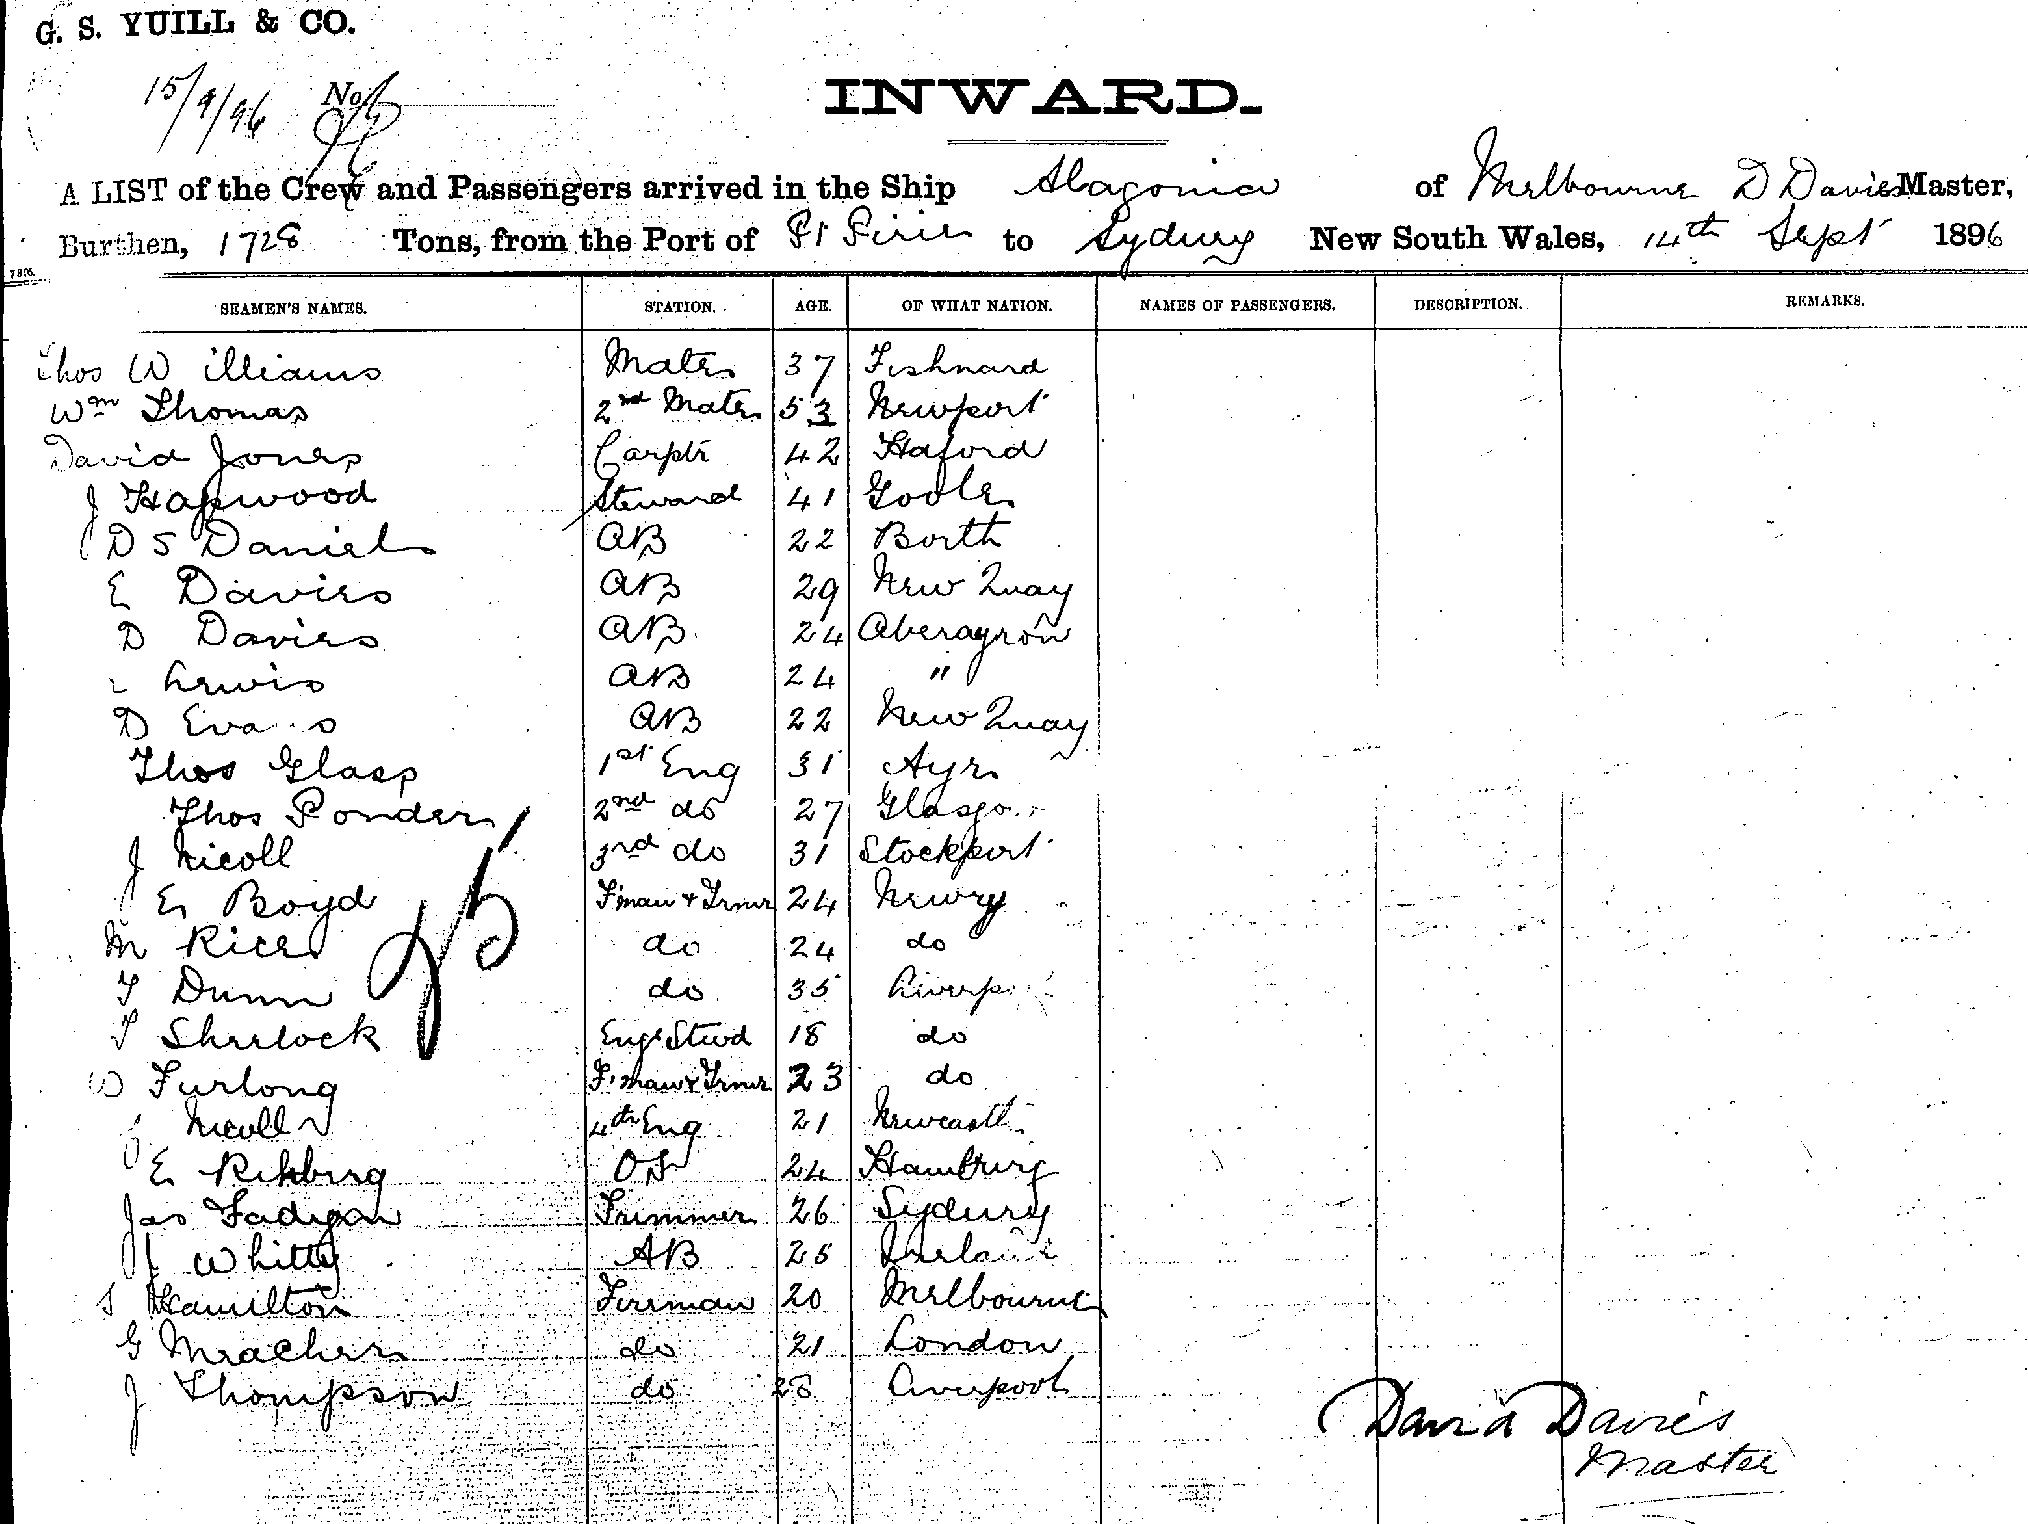 G. S. YUILL & CO.
15/9/96 No.
INWARD.
A LIST of the Crew and Passengers arrived in the Ship Alagonia of Melbourne D Davies Master,
Burthen, 1728 Tons, from the Port of Pt Pirie to Sydney New South Wales, 14th Sept 1896
SEAMEN'S NAMES. STATION. AGE. OF WHAT NATION. NAMES OF PASSENGERS. DESCRIPTION. REMARKS.
Thos Williams Mate 37 Fishnard
Wm Thomas 2nd Mate 53 Newport
David Jones Carptr 42 Haford
J Hapwood Steward 41 Goole
D S Daniel AB 22 Borth
E Davies AB 29 New Quay
D Davies AB 24 Aberayron
Lewis AB 24 "
D Evans AB 22 New Quay
Thos Glass 1st Eng 31 Ayr
Thos Ponder 2nd do 27 Glasgo
J Nicoll 3rd do 31 Stockport
E Boyd F'man & Trmr 24 Newry
M Rice do 24 do
T Dunn do 35 Liverp
T Sherlock Eng Stwd 18 do
W Furlong F'man & Trmr 23 do
Nicoll 4th Eng 21 Newcastle
E Rehberg OS 24 Hamburg
Jas Fadigan Trimmer 26 Sydney
J Whitty AB 25 Ireland
S Hamilton Fireman 20 Melbourne
G Meacher do 21 London
J Thompson do 28 Liverpool
David Davies
Master